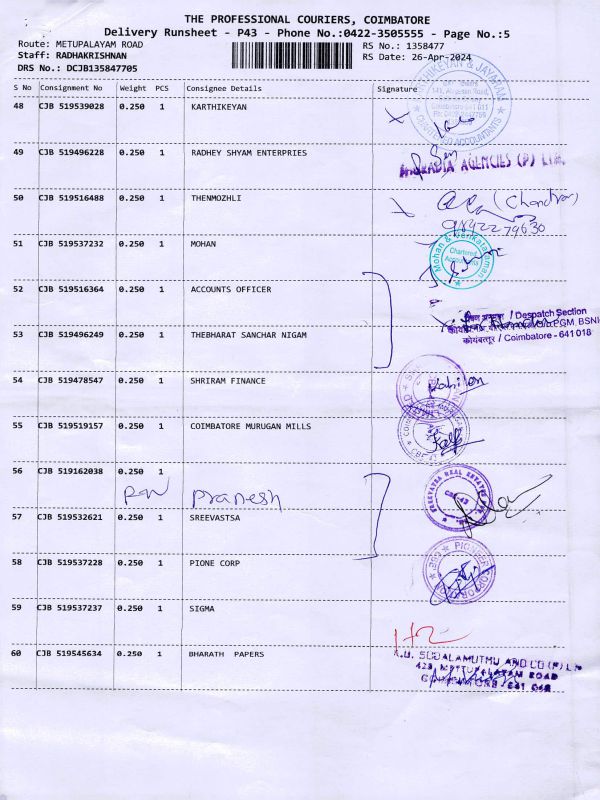 THE PROFESSIONAL COURIERS, COIMBATORE
Delivery Runsheet - P43 - Phone No.:0422-3505555 - Page No.:5
Route: METUPALAYAM ROAD
RS No.: 1358477
Staff: RADHAKRISHNAN
RS Date: 26-Apr-2024
DRS No.: DCJB135847705
S No Consignment No Weight PCS Consignee Details Signature
48 CJB 519539028 0.250 1 KARTHIKEYAN
CHARTERED ACCOUNTANTS
49 CJB 519496228 0.250 1 RADHEY SHYAM ENTERPRIES
AGENCIES (P) LTD.
50 CJB 519516488 0.250 1 THENMOZHLI
9842279630
51 CJB 519537232 0.250 1 MOHAN
Mohan & Venkataraman
Chartered
Accountants
52 CJB 519516364 0.250 1 ACCOUNTS OFFICER
/ Despatch Section
PGM, BSNL
कोयंबत्तूर / Coimbatore - 641 018
53 CJB 519496249 0.250 1 THEBHARAT SANCHAR NIGAM
54 CJB 519478547 0.250 1 SHRIRAM FINANCE
55 CJB 519519157 0.250 1 COIMBATORE MURUGAN MILLS
56 CJB 519162038 0.250 1
Pranesh
57 CJB 519532621 0.250 1 SREEVASTSA
58 CJB 519537228 0.250 1 PIONE CORP
59 CJB 519537237 0.250 1 SIGMA
60 CJB 519545634 0.250 1 BHARATH PAPERS
SUDALAMUTHU AND CO (P) LTD
423, METTUPALAYAM ROAD
COIMBATORE - 641 043